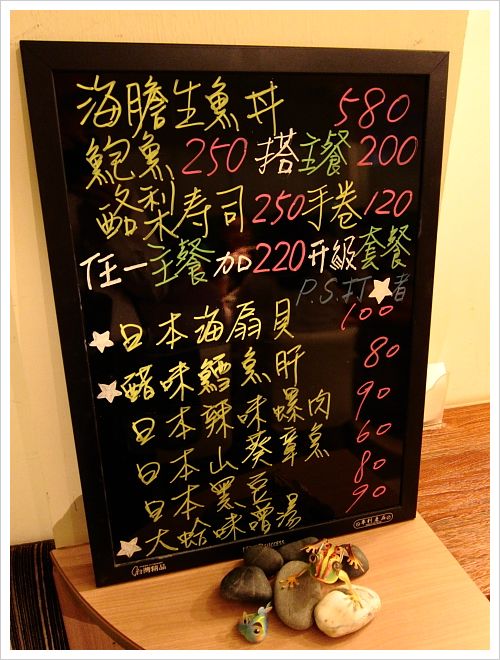 海膽生魚丼 580
鮑魚 250 搭主餐 200
酪梨壽司 250 手卷 120
任一主餐加 220 升級套餐
P.S.打★者
★日本海扇貝 100
★醋味鱈魚肝 80
日本辣味螺肉 90
日本山葵章魚 60
日本黑豆 80
★大蛤味噌湯 90
台灣精品